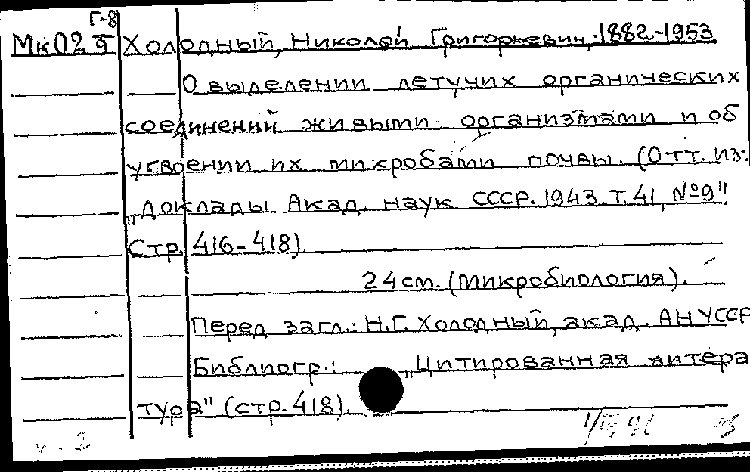 Г-8
Мк02 Холодный, Николай Григорьевич, 1882-1953
О выделении летучих органических
соединений живыми организмами и об
усвоении их микробами почвы. (Отт. из:
"Доклады Акад. наук СССР. 1943. Т. 41, №9"
Стр. 416-418).
24 см. (Микробиология).
Перед загл.: Н.Г. Холодный, акад. АН УССР
Библиогр.: "Цитированная литера
тура" (стр. 418).